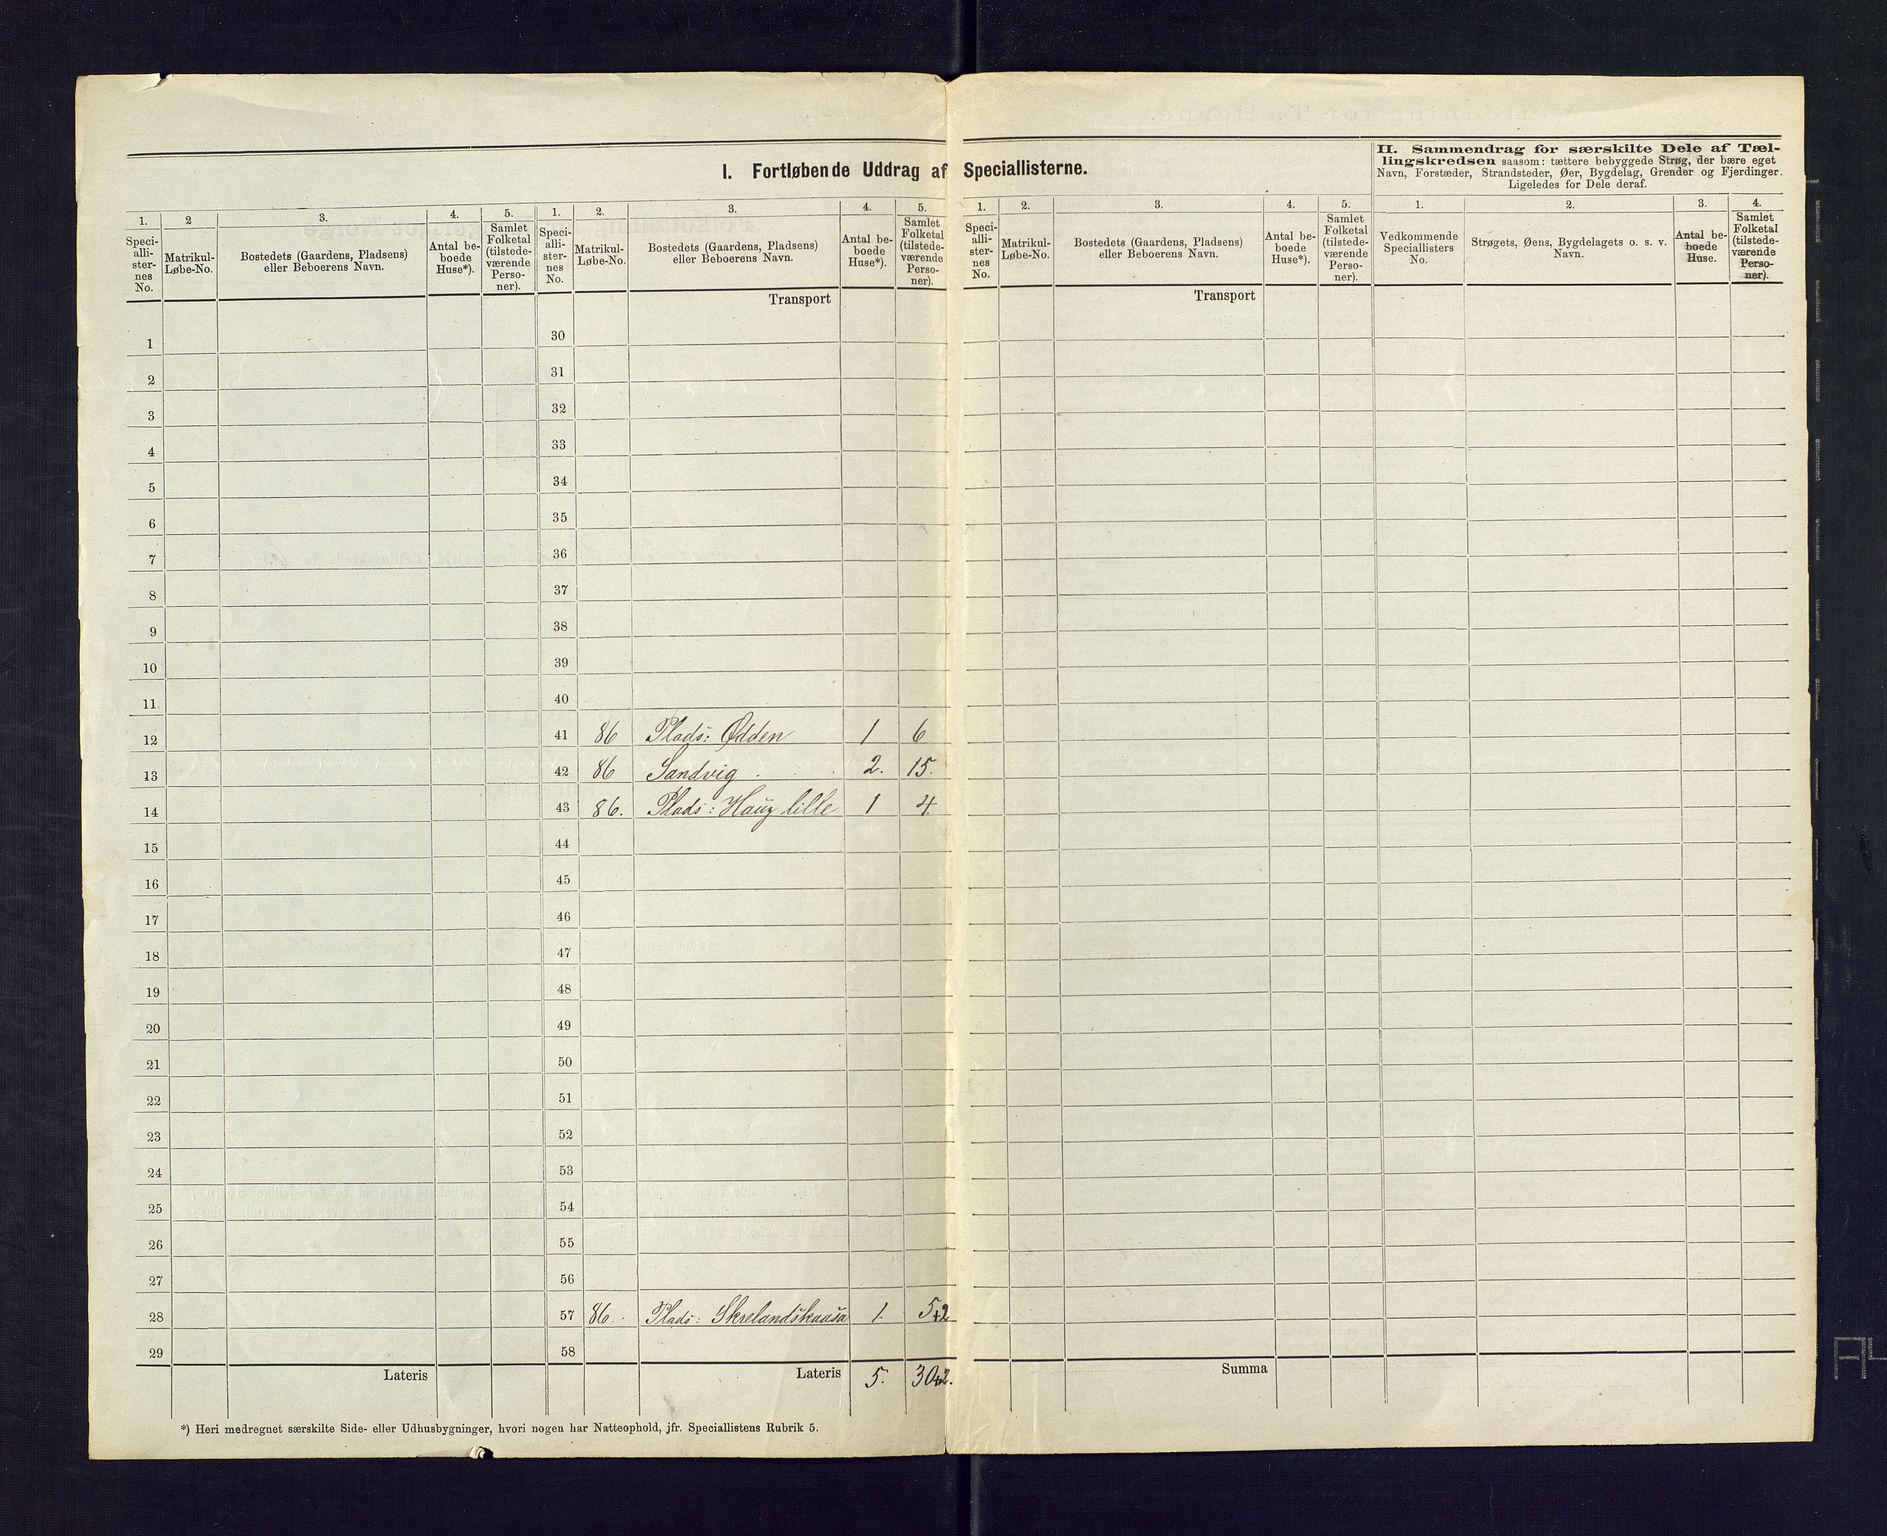 I. Fortløbende Uddrag af Speciallisterne.
II. Sammendrag for særskilte Dele af Tæl-
lingskredsen saasom: tættere bebyggede Strøg, der bære eget
Navn, Forstæder, Strandsteder, Øer, Bygdelag, Grender og Fjerdinger.
Ligeledes for Dele deraf.
1. 2 3. 4. 5. 1. 2. 3. 4. 5. 1. 2. 3. 4. 5. 1. 2. 3. 4.
Speci-
alli-
ster-
nes
No.
Matrikul-
Løbe-No.
Bostedets (Gaardens, Pladsens)
eller Beboerens Navn.
Antal be-
boede
Huse*).
Samlet
Folketal
(tilstede-
værende
Perso-
ner).
Speci-
alli-
ster-
nes
No.
Matrikul-
Løbe-No.
Bostedets (Gaardens, Pladsens)
eller Beboerens Navn.
Antal be-
boede
Huse*).
Samlet
Folketal
(tilstede-
værende
Perso-
ner).
Speci-
alli-
ster-
nes
No.
Matrikul-
Løbe-No.
Bostedets (Gaardens, Pladsens)
eller Beboerens Navn.
Antal be-
boede
Huse*).
Samlet
Folketal
(tilstede-
værende
Perso-
ner).
Vedkommende
Speciallisters
No.
Strøgets, Øens, Bygdelagets o. s. v.
Navn.
Antal be-
boede
Huse.
Samlet
Folketal
(tilstede-
værende
Perso-
ner).
Transport Transport
1 30
2 31
3 32
4 33
5 34
6 35
7 36
8 37
9 38
10 39
11 40
12 41 86 Plads: Odden 1 6
13 42 86 Sandvig 2. 15.
14 43 86. Plads: Haug lille 1 4.
15 44
16 45
17 46
18 47
19 48
20 49
21 50
22 51
23 52
24 53
25 54
26 55
27 56
28 57 86. Plads: Skrelandskaasa 1. 5+2
29 58
Lateris Lateris 5. 30+2. Summa
*) Heri medregnet særskilte Side- eller Udhusbygninger, hvori nogen har Natteophold, jfr. Speciallistens Rubrik 5.